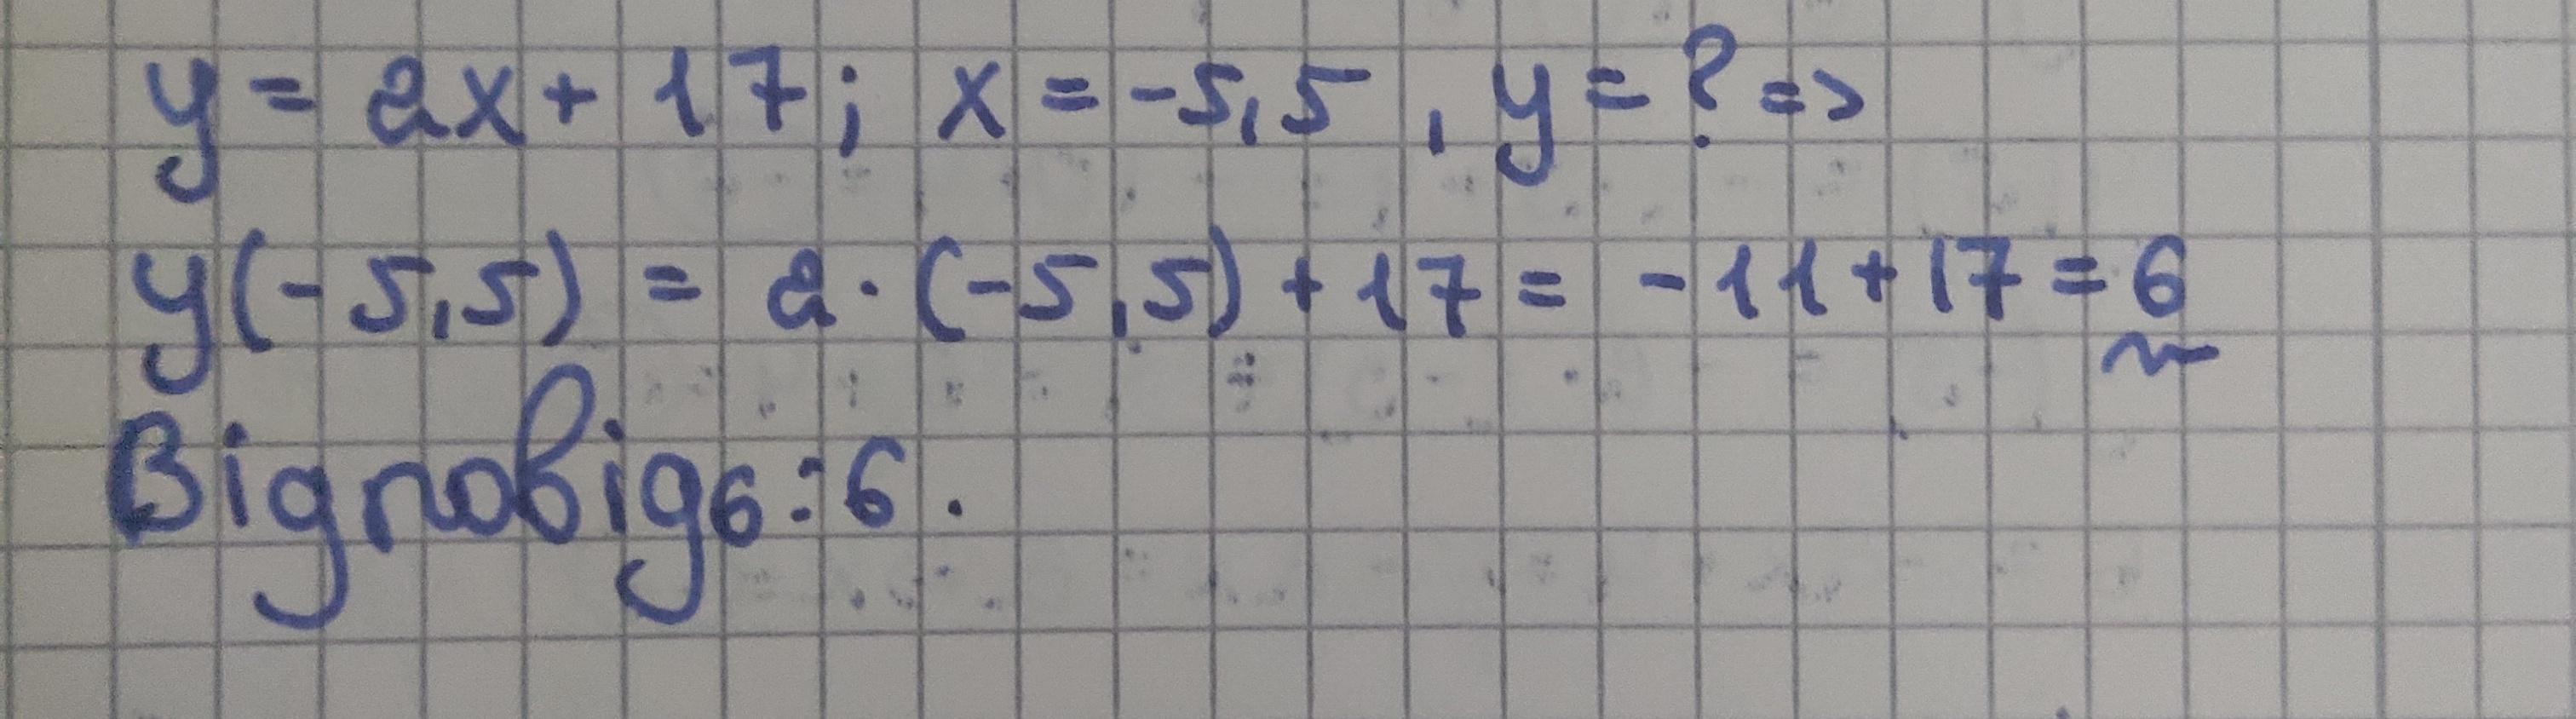 y = 2x + 17; x = -5,5, y = ? =>
y(-5,5) = 2 · (-5,5) + 17 = -11 + 17 = 6
Відповідь: 6.